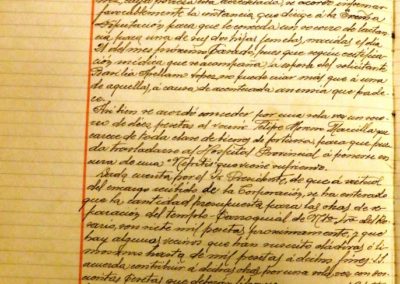 favorablemente la instancia que dirige a la Excma
Diputación para que le conceda un socorro de lactan
cia para una de sus dos hijas, nacidas el día
21 del mes próximo pasado, pues que según certifica
ción médica que acompaña, la esposa del solicitante
no puede criar más que a una
de aquellas, a causa de acentuada anemia que pade
ce.
Así bien se acordó conceder por una sola vez un soco
rro de diez pesetas al vecino Felipe Moreno que
carece de toda clase de bienes de fortuna, para que pue
da trasladarse al Hospital Provincial a ponerse en
cura de una Nefritis que viene sufriendo.
Dada cuenta por el Sr. Presidente, de que a virtud
del encargo recibido de la Corporación, se ha enterado
que la cantidad presupuesta para las obras de re
paración del templo Parroquial de Ntra. Sra. del Ro
sario, son siete mil pesetas proximamente, y que
hay algunos vecinos que han suscrito dádivas o li
mosnas hasta de mil pesetas a dichos fines, se
acuerda contribuir a dichas obras por una sola vez, con
pesetas que